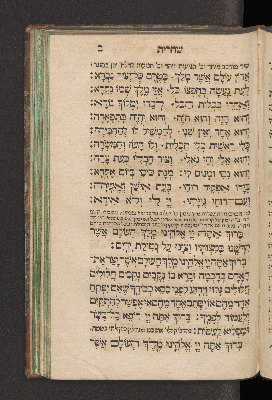 שחרית
אדון עולם אשר מלך · בטרם כל יציר נברא:
לעת נעשה בחפצו כל · אזי מלך שמו נקרא:
ואחרי ככלות הכל · לבדו ימלוך נורא:
והוא היה והוא הוה · והוא יהיה בתפארה:
והוא אחד ואין שני · להמשיל לו להחבירה:
בלי ראשית בלי תכלית · ולו העוז והמשרה:
והוא אלי וחי גואלי · וצור חבלי בעת צרה:
והוא נסי ומנוס לי · מנת כוסי ביום אקרא:
בידו אפקיד רוחי · בעת אישן ואעירה:
ועם רוחי גויתי · יי לי ולא אירא:
ברוך אתה יי אלהינו מלך העולם אשר
קדשנו במצותיו וצונו על נטילת ידים:
ברוך אתה יי אלהינו מלך העולם אשר יצר את
האדם בחכמה וברא בו נקבים נקבים חלולים
חלולים גלוי וידוע לפני כסא כבודך שאם יפתח
אחד מהם או יסתם אחד מהם אי אפשר להתקיים
ולעמוד לפניך: ברוך אתה יי רופא כל בשר
ומפליא לעשות:
ברוך אתה יי אלהינו מלך העולם אשר